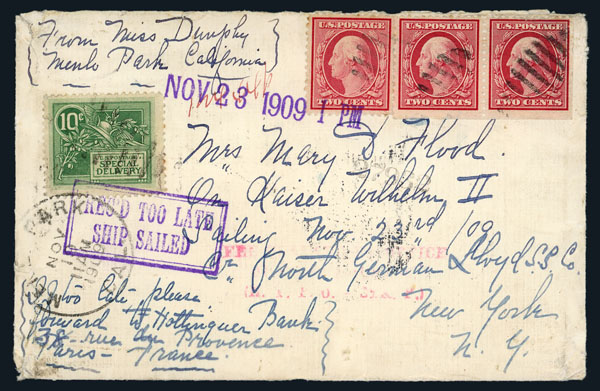 From Miss Dunphy
Menlo Park California
U.S. POSTAGE
TWO CENTS
U.S. POSTAGE
TWO CENTS
U.S. POSTAGE
TWO CENTS
NOV 23 1909 1 PM
10¢
U.S. POSTAGE
SPECIAL
DELIVERY
Mrs Mary D Flood.
On Kaiser Wilhelm II
Sailing Nov 23rd '09
North German Lloyd SS Co.
New York
N. Y.
PARK
NOV
11 AM
CAL
REC'D TOO LATE
SHIP SAILED
If too late please
forward to Hottinguer Bank.
38- rue du Provence
Paris- France.